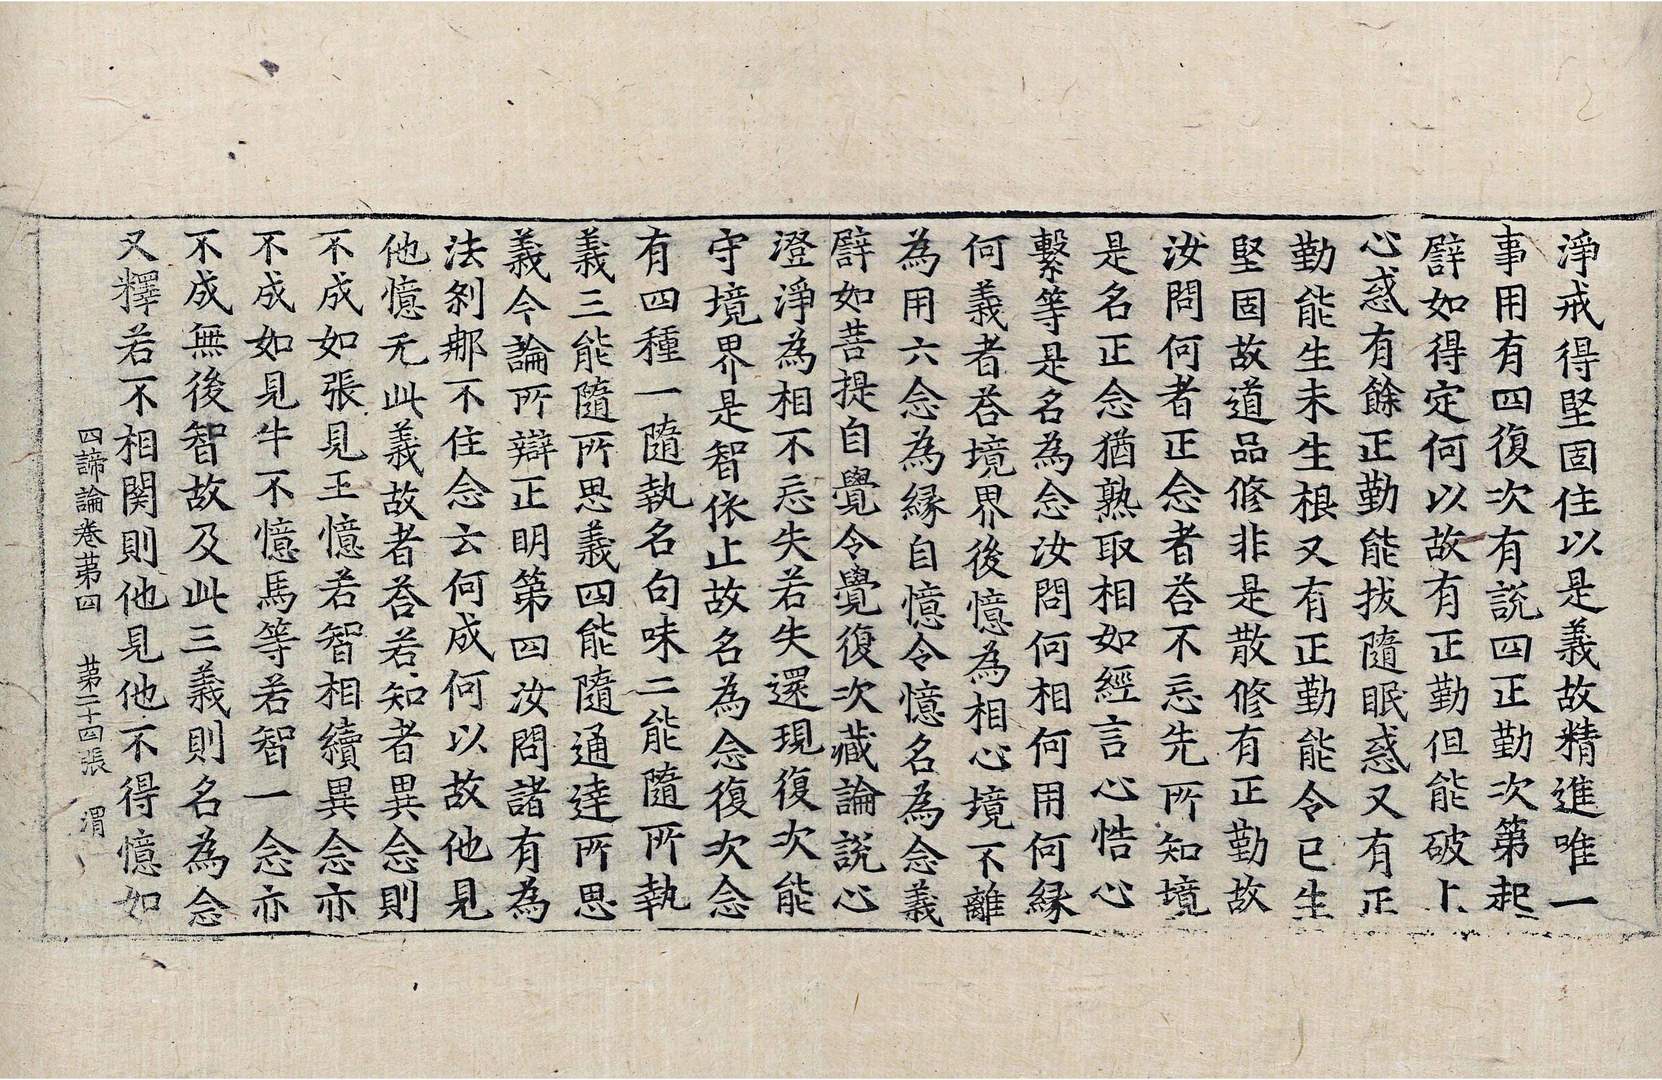 淨戒得堅固住以是義故精進唯一
事用有四復次有說四正勤次第起
譬如得定何以故有正勤但能破上
心惑有餘正勤能拔隨眠惑又有正
勤能生未生根又有正勤能令已生
堅固故道品修非是散修有正勤故
汝問何者正念者荅不忘先所知境
是名正念猶熟取相如經言心悎心
繫等是名為念汝問何相何用何緣
何義者荅境界後憶為相心境不離
為用六念為緣自憶令憶名為念義
譬如菩提自覺令覺復次藏論說心
澄淨為相不忘失若失還現復次能
守境界是智依止故名為念復次念
有四種一隨執名句味二能隨所執
義三能隨所思義四能隨通達所思
義今論所辯正明第四汝問諸有為
法剎那不住念云何成何以故他見
他憶无此義故者荅若知者異念則
不成如張見王憶若智相續異念亦
不成如見牛不憶馬等若智一念亦
不成無後智故及此三義則名為念
又釋若不相関則他見他不得憶如
四諦論卷苐四 苐二十四張 渭